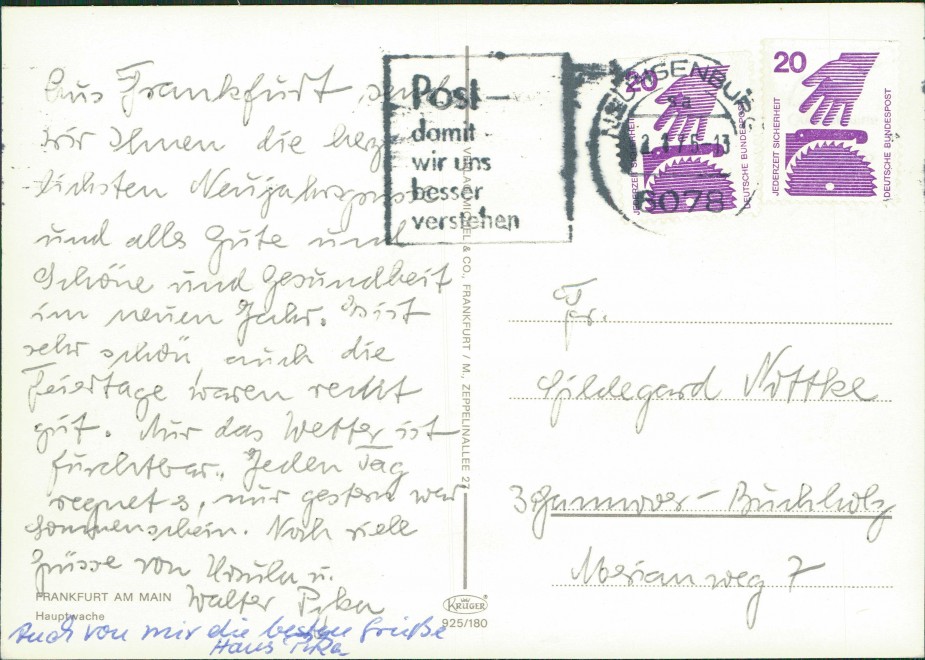 Aus Frankfurt senden
wir Ihnen die herz-
lichsten Neujahrsgrüsse
und alls Gute und
Schöne und Gesundheit
im neuen Jahr. Ist
sehr schön auch die
Feiertage waren recht
gut. Nur das Wetter ist
furchtbar. Jeden Tag
regnet s, nur gestern war
Sonnenschein. Noch viele
Grüsse von Ursula u.
Walter
FRANKFURT AM MAIN
Hauptwache
Auch von mir die besten Grüße
Hans
VERLAG MICHEL & CO., FRANKFURT / M., ZEPPELINALLEE 27
KRÜGER
925/180
Post –
damit
wir uns
besser
verstehen
NEU ISENBURG
6078
20
JEDERZEIT SICHERHEIT
DEUTSCHE BUNDESPOST
20
JEDERZEIT SICHERHEIT
DEUTSCHE BUNDESPOST
Fr.
Hildegard Nottke
3 Hannover – Buchholz
Merianweg 7